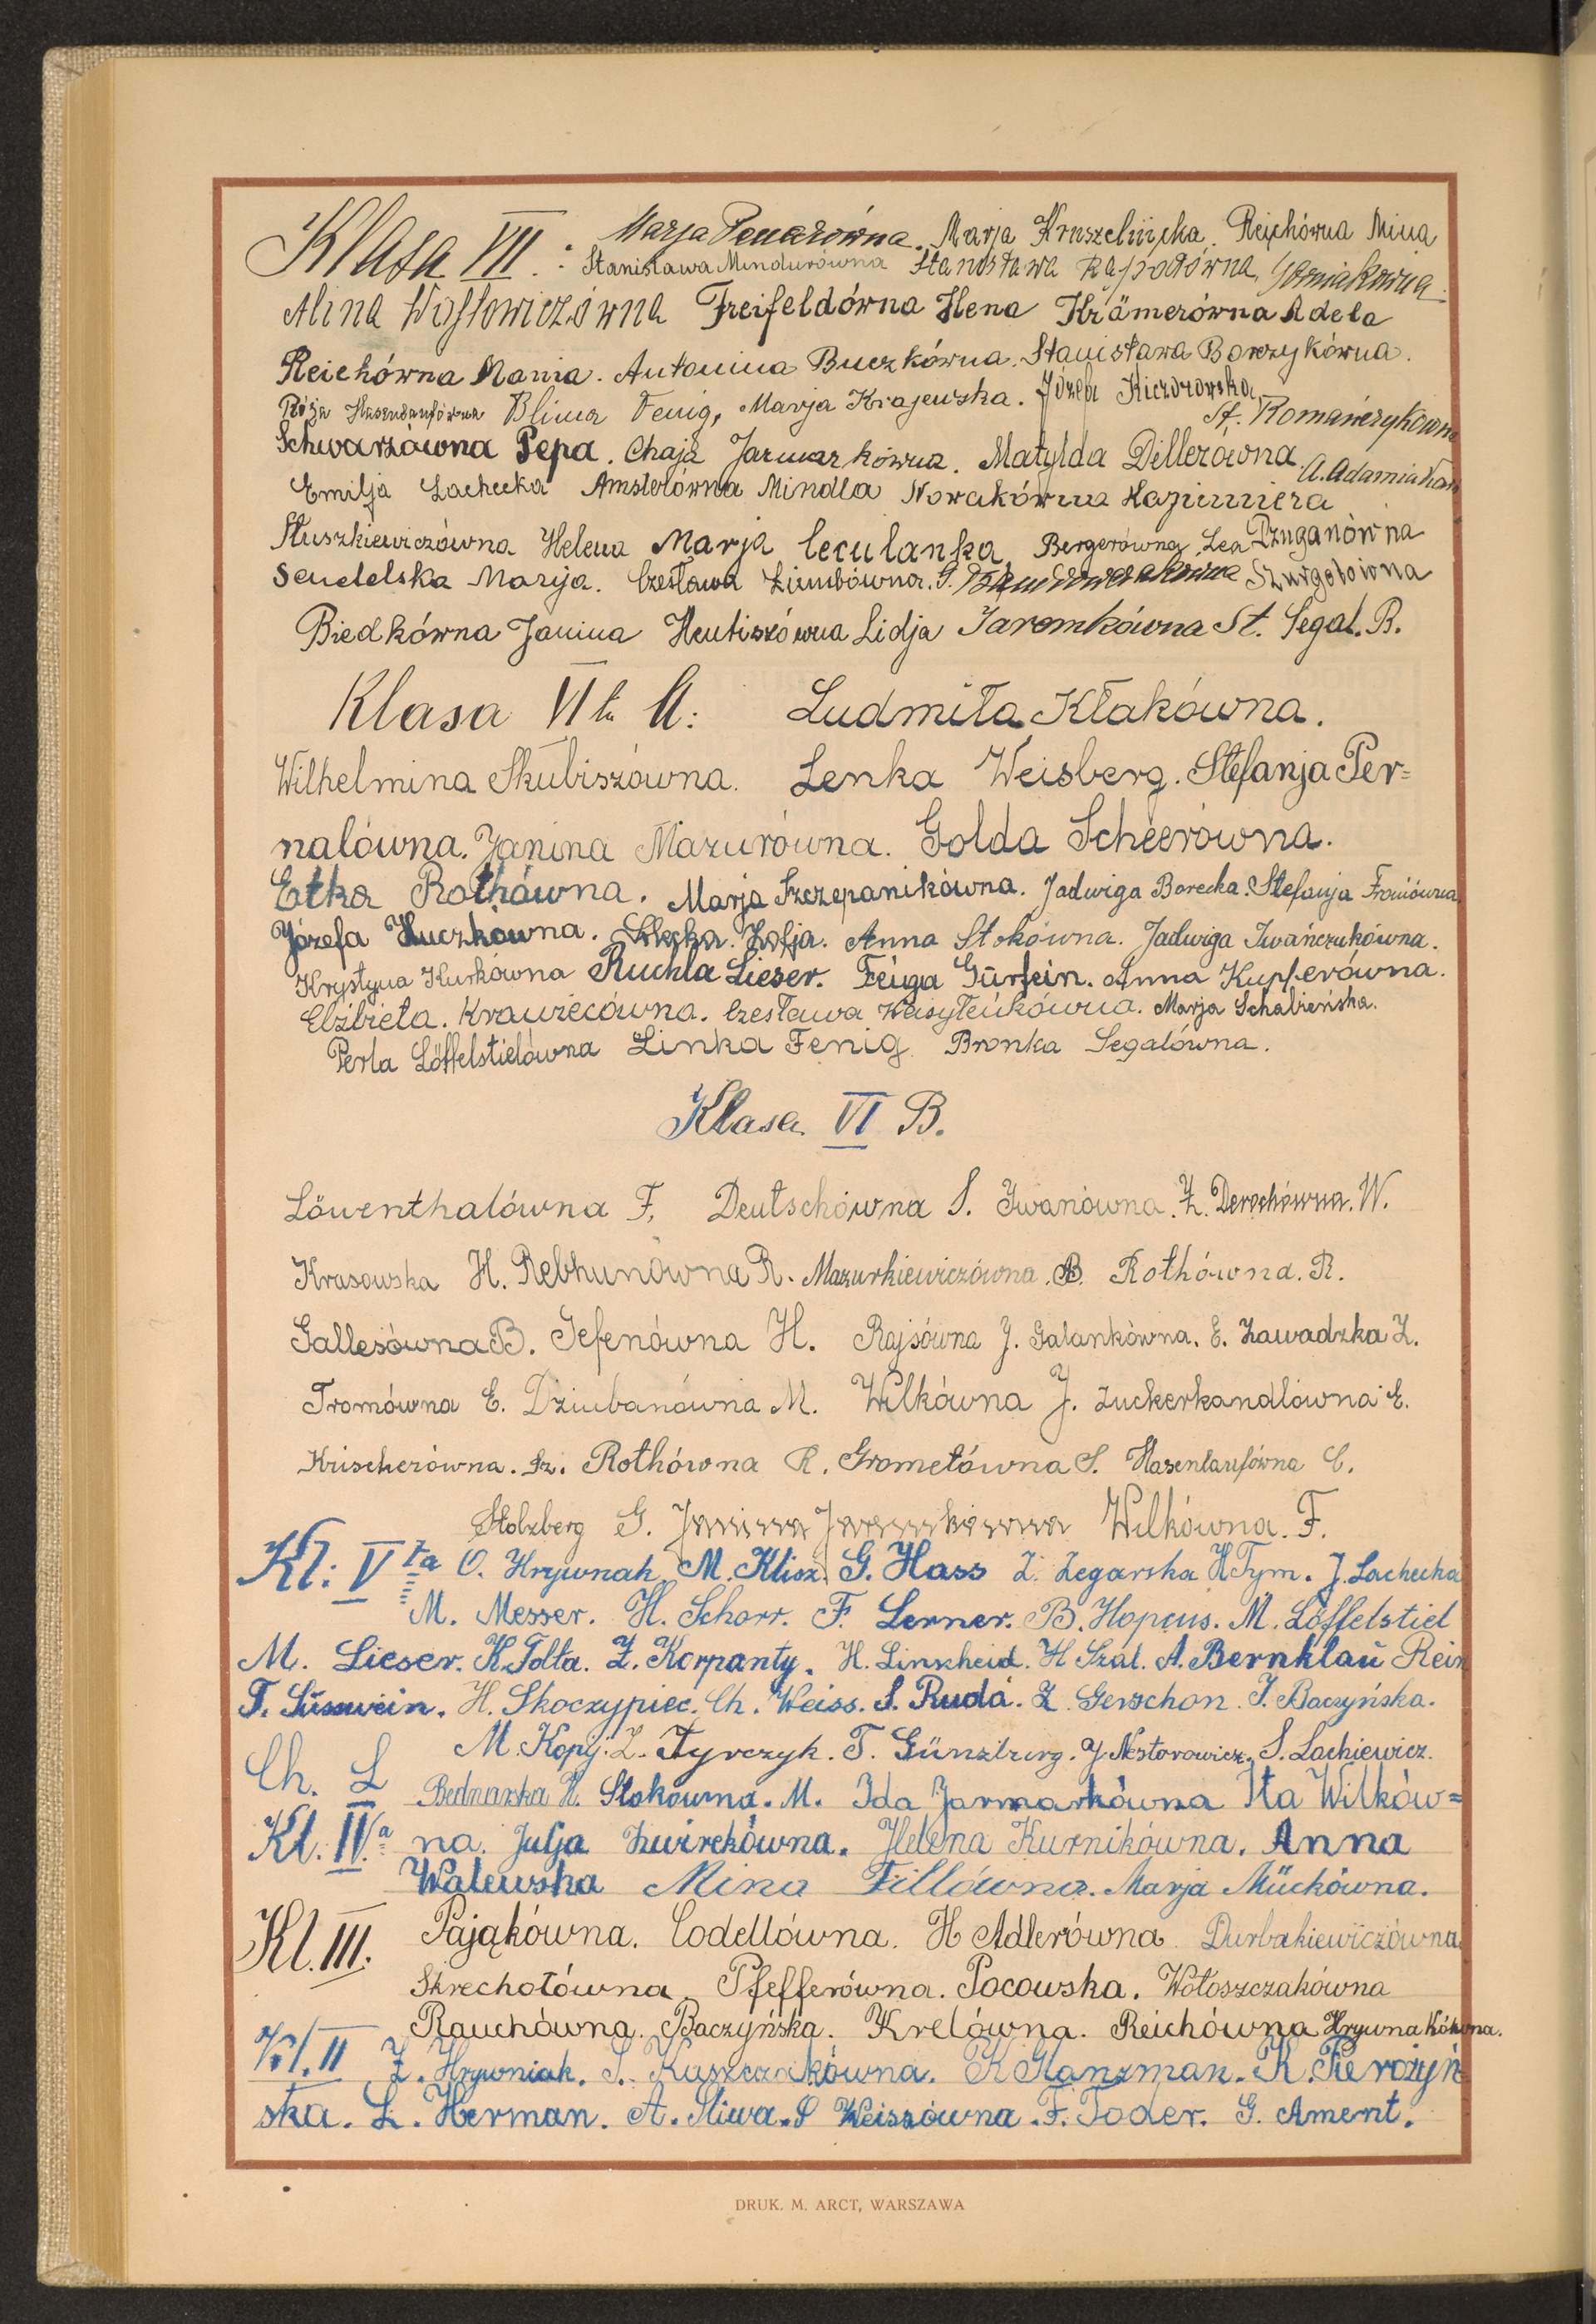 Klasa VII. : Marja Penarówna. Marja Kruszelnicka. Reichówna Mina
Stanisława Mindurówna Stanisława Rapotówna,
Alina Wasłowiczówna Freifeldówna Hena Krämerówna Adela
Reichówna Mania. Antonina Buczkówna. Stanisława Borezykówna.
Róża Hasenlaufówna Blima Fenig, Marja Krajewska. Józefa Kiczorowska, St. Romańczykówna
Schwarzówna Pepa. Chaja Jarmarkówna. Matylda Dillerówna. A. Adamiakówna
Emilja Lachecka Amsterówna Mindla Nowakówna Kazimiera
Słuszkiewiczówna Helena Marja Bergerówna Lea Dzuganówna
Sendelska Marija. Czesława Ziembówna. G. Szurgotówna
Biedkówna Janina Hentiszówna Lidja Jaromkówna St. Segal. R.
Klasa VI ta A: Ludmiła Kłakówna.
Wilhelmina Skubiszówna. Lenka Weisberg. Stefanja Per=
nalówna. Janina Mazurówna. Golda Scheerówna.
Etka Rothówna. Marja Szczepanikówna. Jadwiga Borecka. Stefanja Froniówna.
Józefa Huczkówna. Zofja. Anna Stokówna. Jadwiga Iwańczukówna.
Krystyna Kurkówna Ruchla Lieser. Feiga Gürfein. Anna Kupferówna.
Elżbieta. Krawiecówna. Czesława Wasyleńkówna. Marja Schabieńska.
Perla Löffelstielówna Linka Fenig. Bronka Segalówna.
Klasa VI B.
Löwenthalówna F. Deutschówna S. Iwanówna. Z. Derechówna. W.
Krasowska H. Rebhunówna R. Mazurkiewiczówna. B. Rothówna. R.
Gallesówna B. Tefenówna H. Rajsówna J. Galankówna. E. Zawadzka Z.
Tromówna E. Dziubanówna M. Wilkówna J. Zuckerkandlówna E.
Krischerówna. Sz. Rothówna R. Grometówna S. Hasenlaufówna C.
Stolzberg G. Janina Jaremkówna Wilkówna. F.
Kl: V ta O. Hrywnak. M. Klisz. G. Hass Z. Zegarska H Tym. J. Lachecka
M. Messer. H. Schorr. F. Lerner. B. Hopcus. M. Löffelstiel
M. Lieser. K. Tolta. Z. Korpanty. H. Linscheid. H Szal. A. Bernklau Rein
T. Süsswein. H. Skoczypiec. Ch. Weiss. S. Ruda. Z. Gerschon. J. Baczyńska.
M. Kopij. Z. Tyrczyk. T. Günzburg. J. Nestorowicz. S. Lachiewicz.
Ch. L Bednarska H. Stokówna. M. Ida Jarmarkówna Ita Wilków=
Kl. IV. a na. Julja Zwirekówna. Helena Kurnikówna. Anna
Walewska Mina Tillówna. Marja Mückówna.
Kl. III. Pająkówna. Codellówna. H Adlerówna Durbakiewiczówna.
Skrechotówna. Pfefferówna. Pocowska. Wołoszczakówna
Rauchówna. Baczyńska. Krelówna. Reichówna Hrywnakówna.
Kl. II Z. Hrywniak. S. Kuszczakówna. R Hanzman. K. Pierożyń
ska. L. Herman. A. Śliwa. S Weiszówna. F. Toder. G. Ament.
DRUK. M. ARCT, WARSZAWA